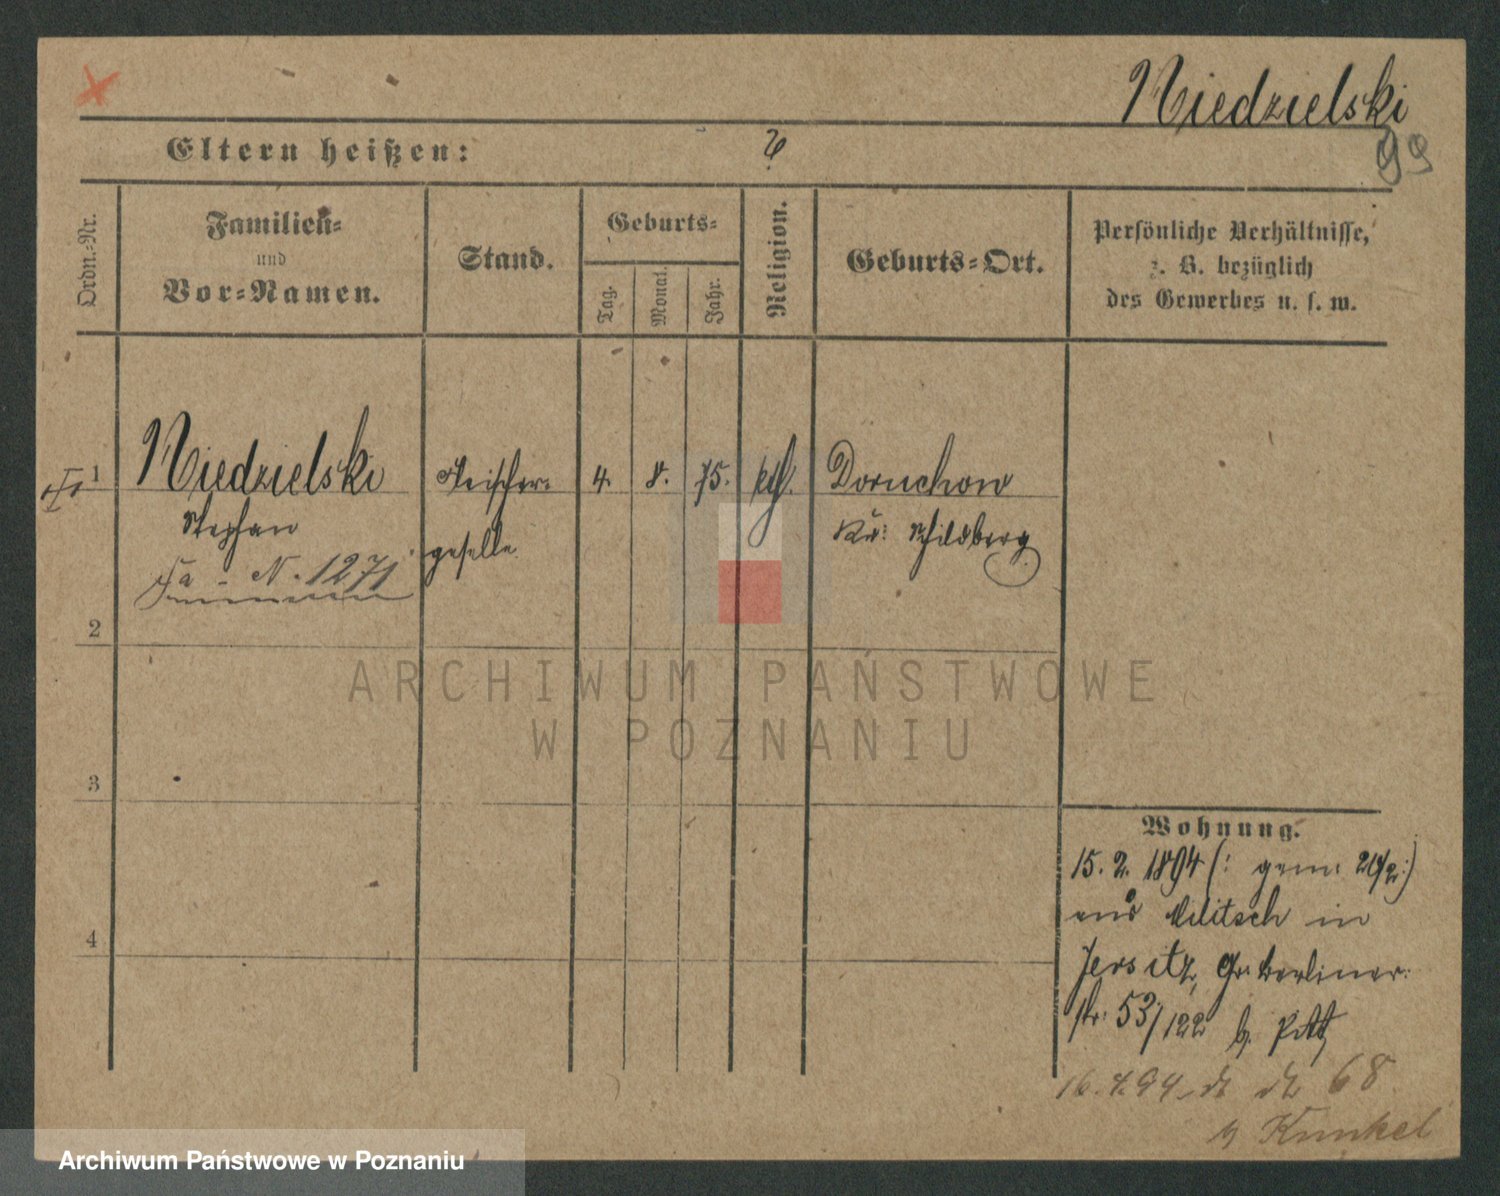 Niedzielski
99
Eltern heißen: ?
Ordn.-Nr.
Familien-
und
Vor-Namen.
Stand.
Geburts-
Tag.
Monat.
Jahr.
Religion.
Geburts-Ort.
Persönliche Verhältnisse,
z. B. bezüglich
des Gewerbes u. s. w.
1 Niedzielski Fleischer- 4. 8. 75. kth. Doruchow
Stephan geselle Kr: Schildberg
N. 1271
2
3
4
Wohnung.
15. 2. 1894 (: gem: 20/2 :)
aus Militsch in
Jersitz, Gr: Berliner-
str: 53/122 b.
16. 4. 94 68
Kunkel
ARCHIWUM PAŃSTWOWE
W POZNANIU
Archiwum Państwowe w Poznaniu